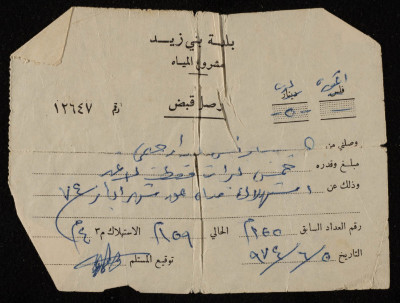 بلدية بني زيد
مشروع المياه
وصل قبض
رقم ١٢٦٤٧
فلس دينار
٥
وصلني من
مبلغ وقدره خمس ليرات فقط لا غير
وذلك عن استهلاك مياه عن شهر أيار / ٧٤
رقم العداد السابق ١٥٥م الحالي ١٥٩م الاستهلاك م٣ ٤م
التاريخ ٥ / ٦ / ٩٧٤ توقيع المستلم